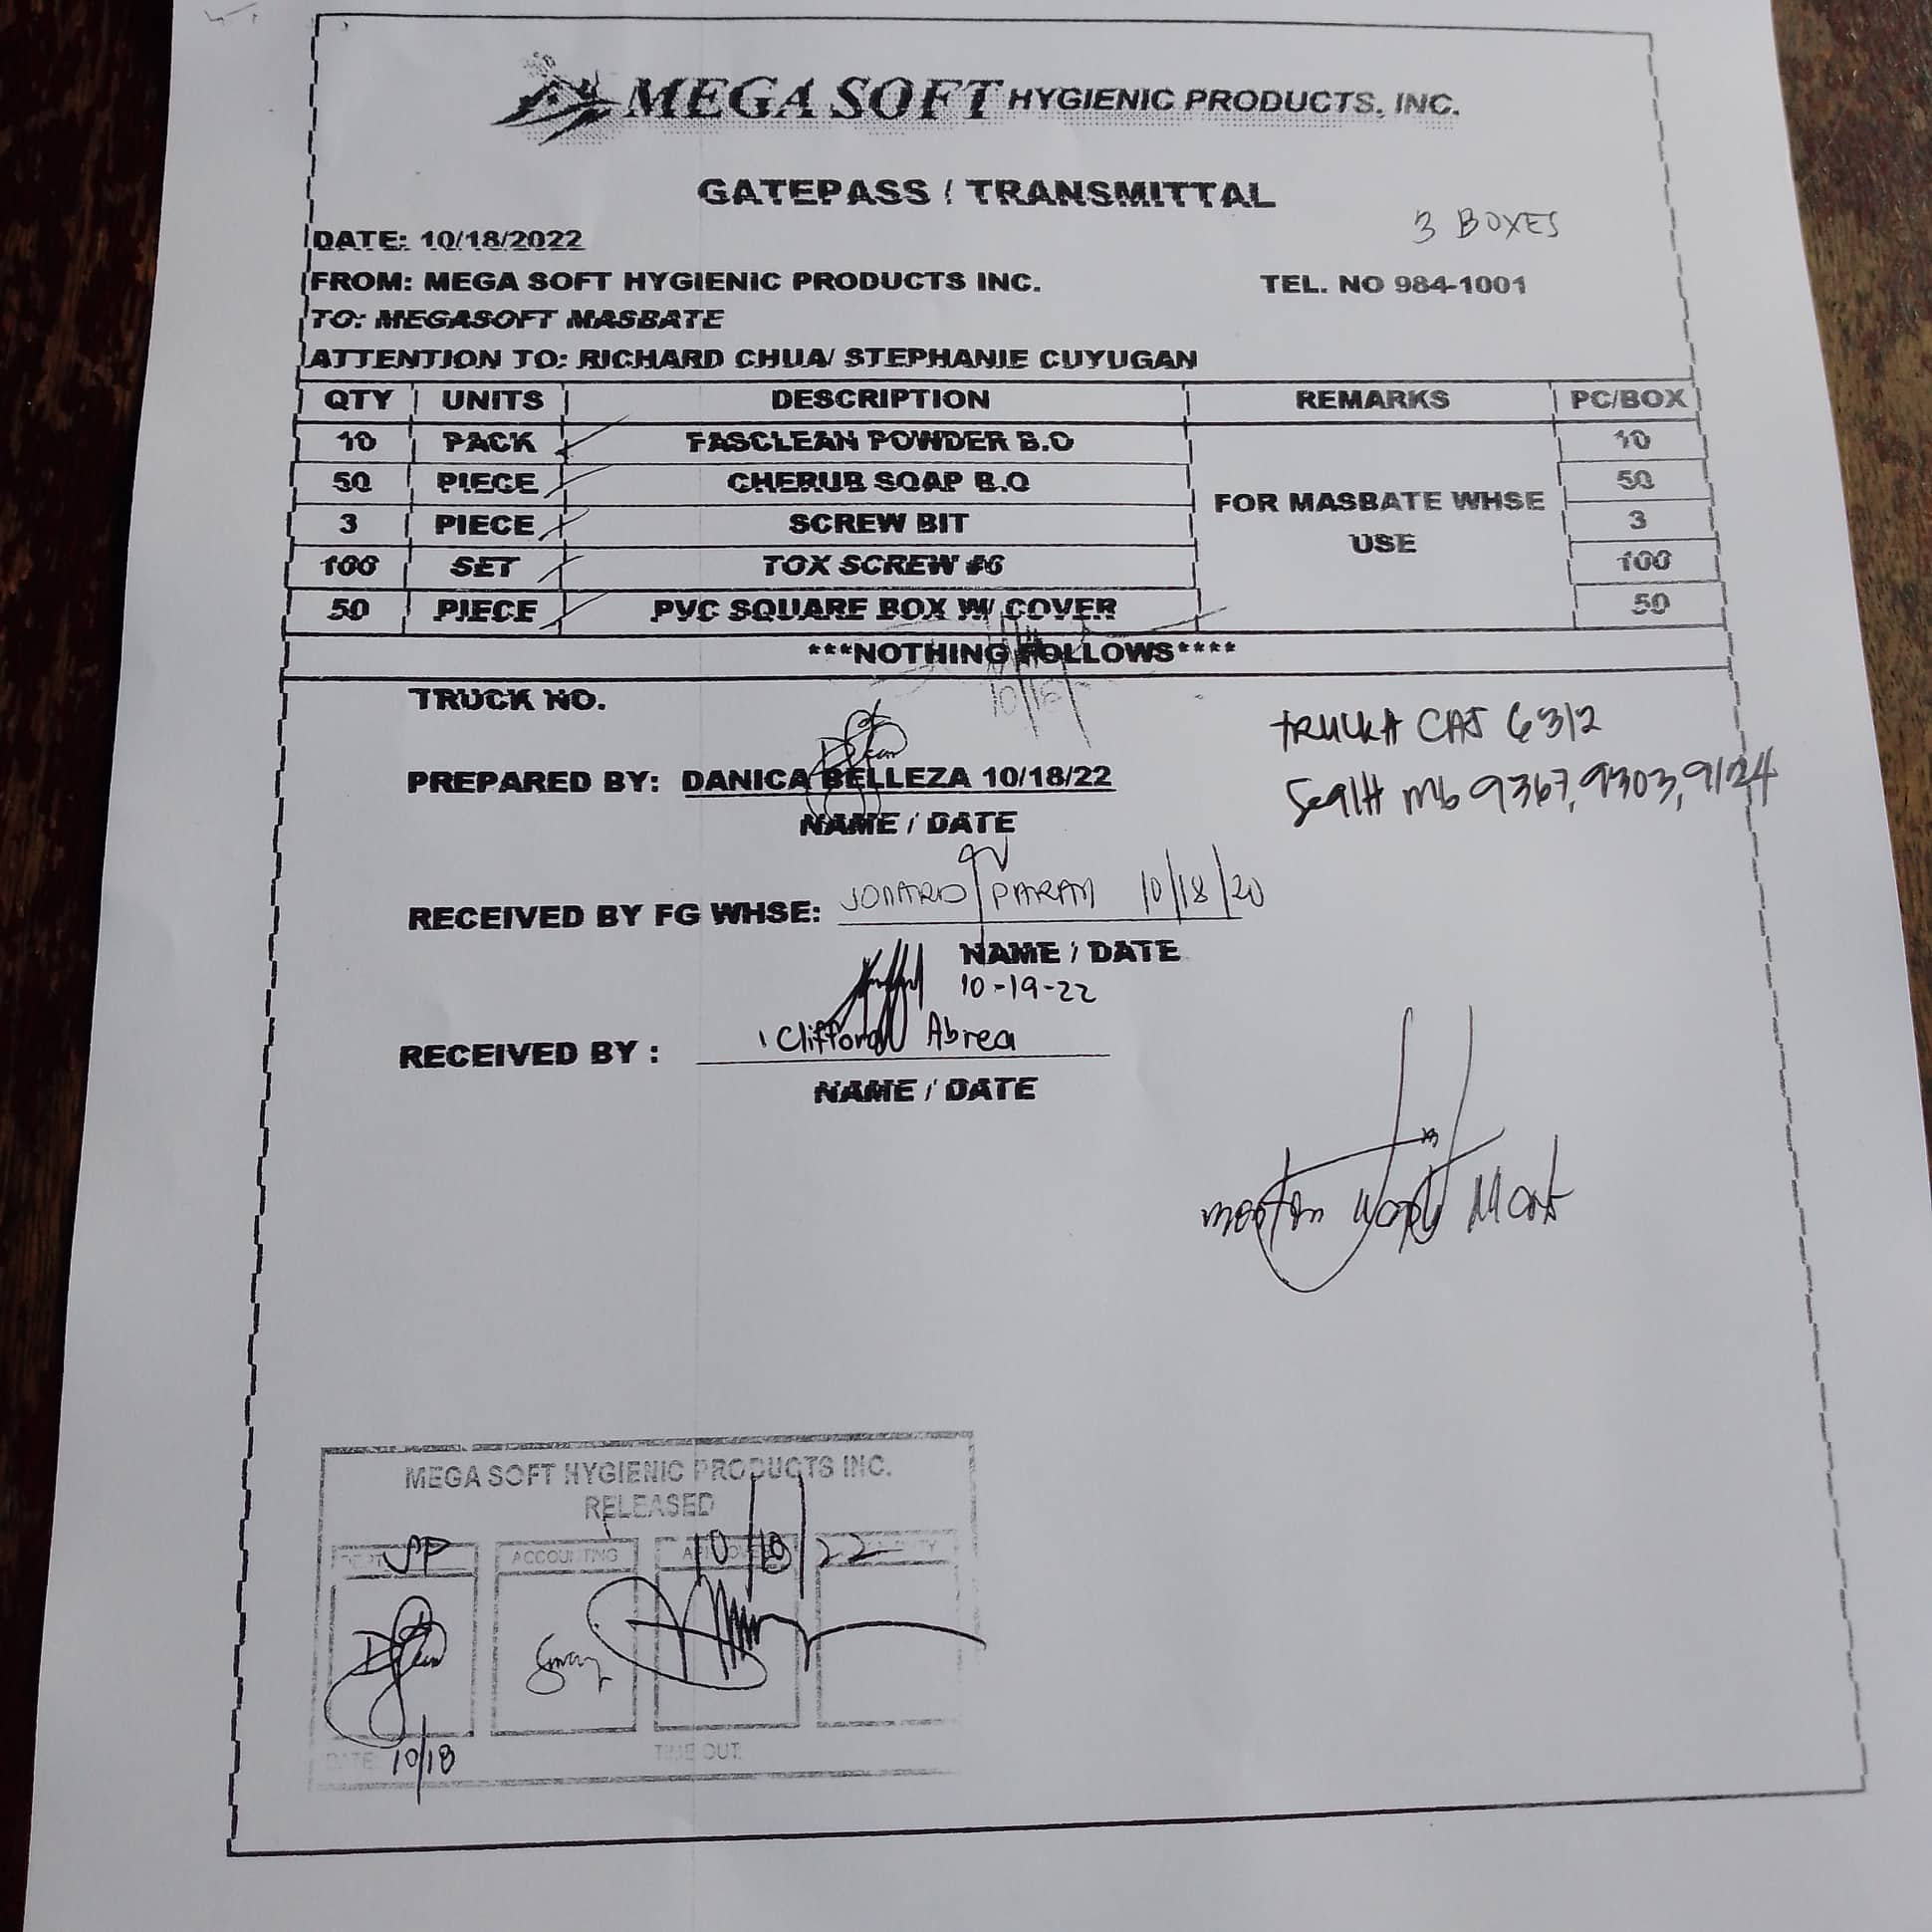 MEGA SOFT HYGIENIC PRODUCTS, INC.
GATEPASS / TRANSMITTAL
3 BOXES
DATE: 10/18/2022
FROM: MEGA SOFT HYGIENIC PRODUCTS INC. TEL. NO 984-1001
TO: MEGASOFT MASBATE
ATTENTION TO: RICHARD CHUA/ STEPHANIE CUYUGAN
QTY UNITS DESCRIPTION REMARKS PC/BOX
10 PACK FASCLEAN POWDER B.O 10
50 PIECE CHERUB SOAP B.O 50
FOR MASBATE WHSE
3 PIECE SCREW BIT 3
USE
100 SET TOX SCREW #6 100
50 PIECE PVC SQUARE BOX W/ COVER 50
***NOTHING FOLLOWS****
TRUCK NO.
TRUCK# CAJ 6312
PREPARED BY: DANICA BELLEZA 10/18/22
Seal# mb 9367, 9303, 9124
NAME / DATE
RECEIVED BY FG WHSE: 10/18/20
NAME / DATE
10-19-22
RECEIVED BY : Clifford Abrea
NAME / DATE
MEGA SOFT HYGIENIC PRODUCTS INC.
RELEASED
ACCOUNTING
DATE 10/18 TIME OUT